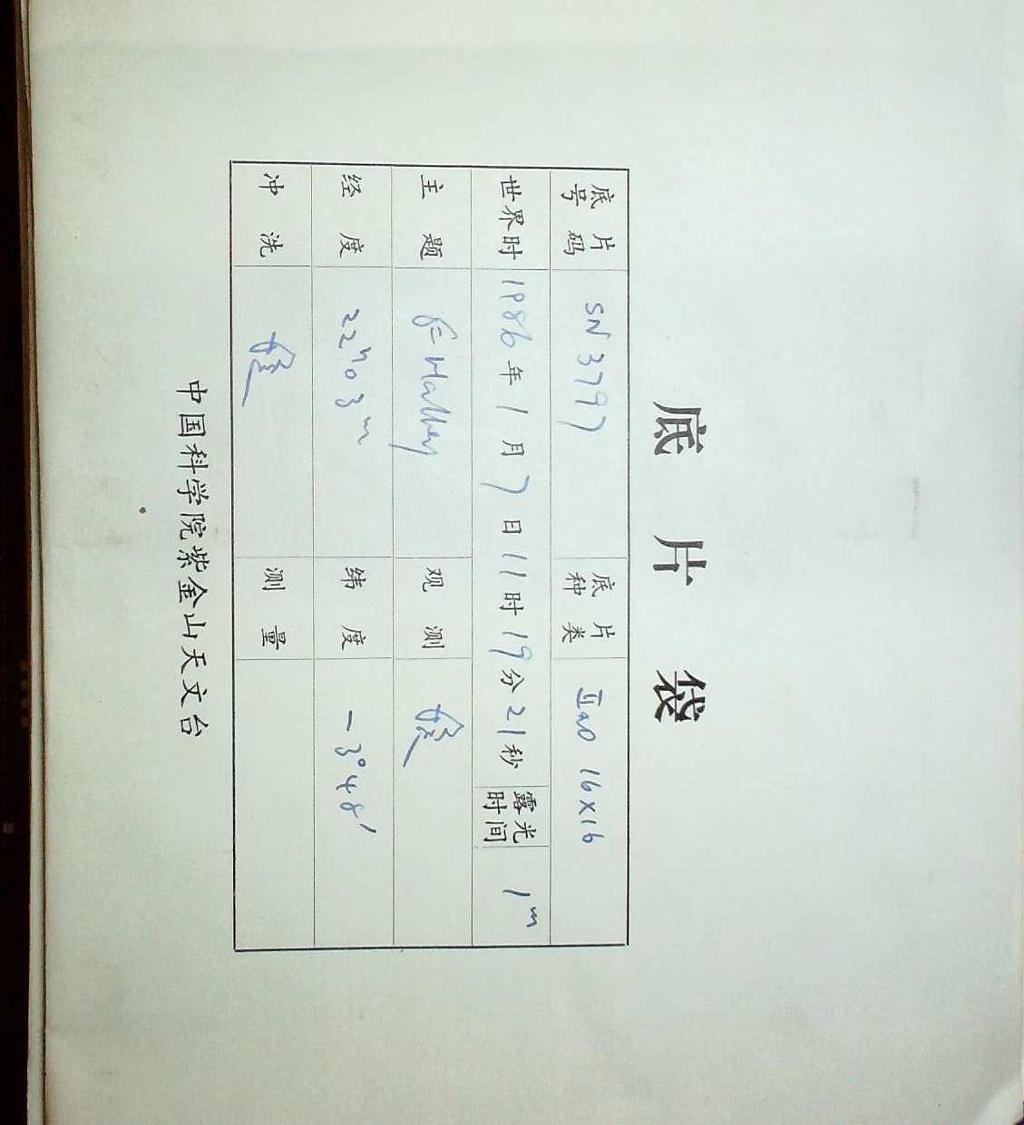 底片袋
底片号码 SN 3797 底片种类 IIaO 16×16
世界时 1986年1月7日11时19分21秒 露光时间 1m
主题 Halley 观测
经度 22h03m 纬度 -3°48′
冲洗 测量
中国科学院紫金山天文台